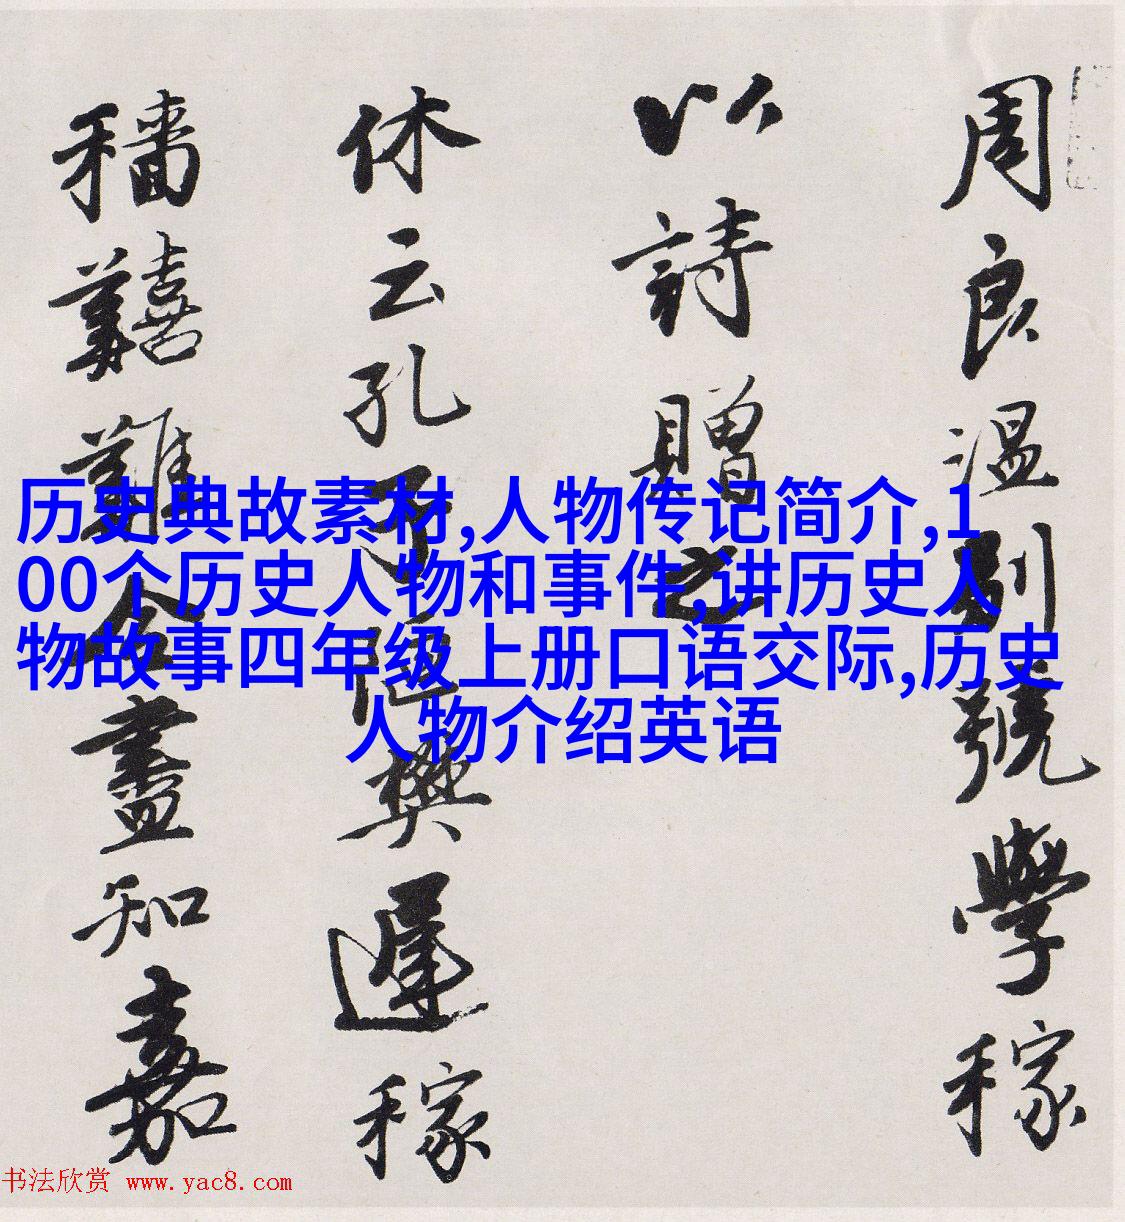 历史典故素材,人物传记简介,1
00个历史人物和事件,讲历史人
物故事四年级上册口语交际,历史
人物介绍英语
周良溫別號學稼
以詩贈之
休云孔子樊遲稼
穡囏難盡知嘉
书法欣赏 www.yac8.com